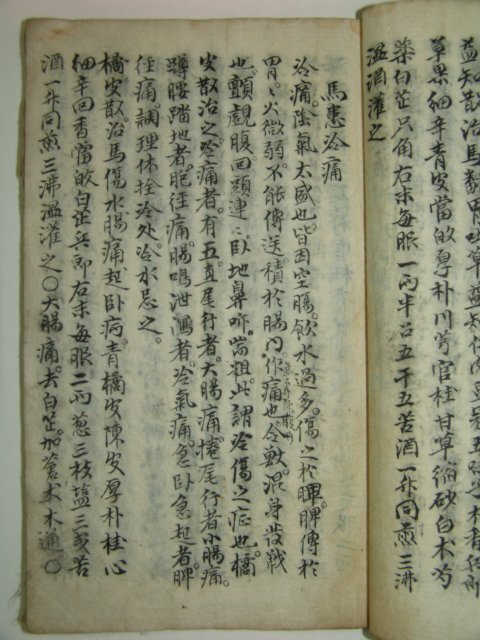 益知散治馬翻胃吐草益知
草果細辛青皮當皈厚朴川芎官桂甘草縮砂白朮芍
藥白芷只角右末每服一兩半召五干五苦酒一升同煎三沸
溫酒灌之
馬患冷痛
冷痛陰氣太盛也皆因空腸飮水過多傷之於脾脾傳於
胃胃火微弱不能傳送積於腸內作痛也令獸混身發戰
也顫觀腹回頭連連卧地鼻咋喘粗此謂冷傷之症也橘
皮散治之冷痛者有五直尾行者大腸痛捲尾行者小腸痛
蹲腰踏地者胞住痛腸鳴泄瀉者冷氣痛急卧急起者脾
痊痛調理休拴冷處冷水忌之
橘皮散治馬傷水腸痛起卧病靑橘皮陳皮厚朴桂心
細辛回香當皈白芷兵郎右末每服二兩葱三枝塩三戔苦
酒一升同煎三沸溫灌之○大腸痛去白芷加蒼朮木通○